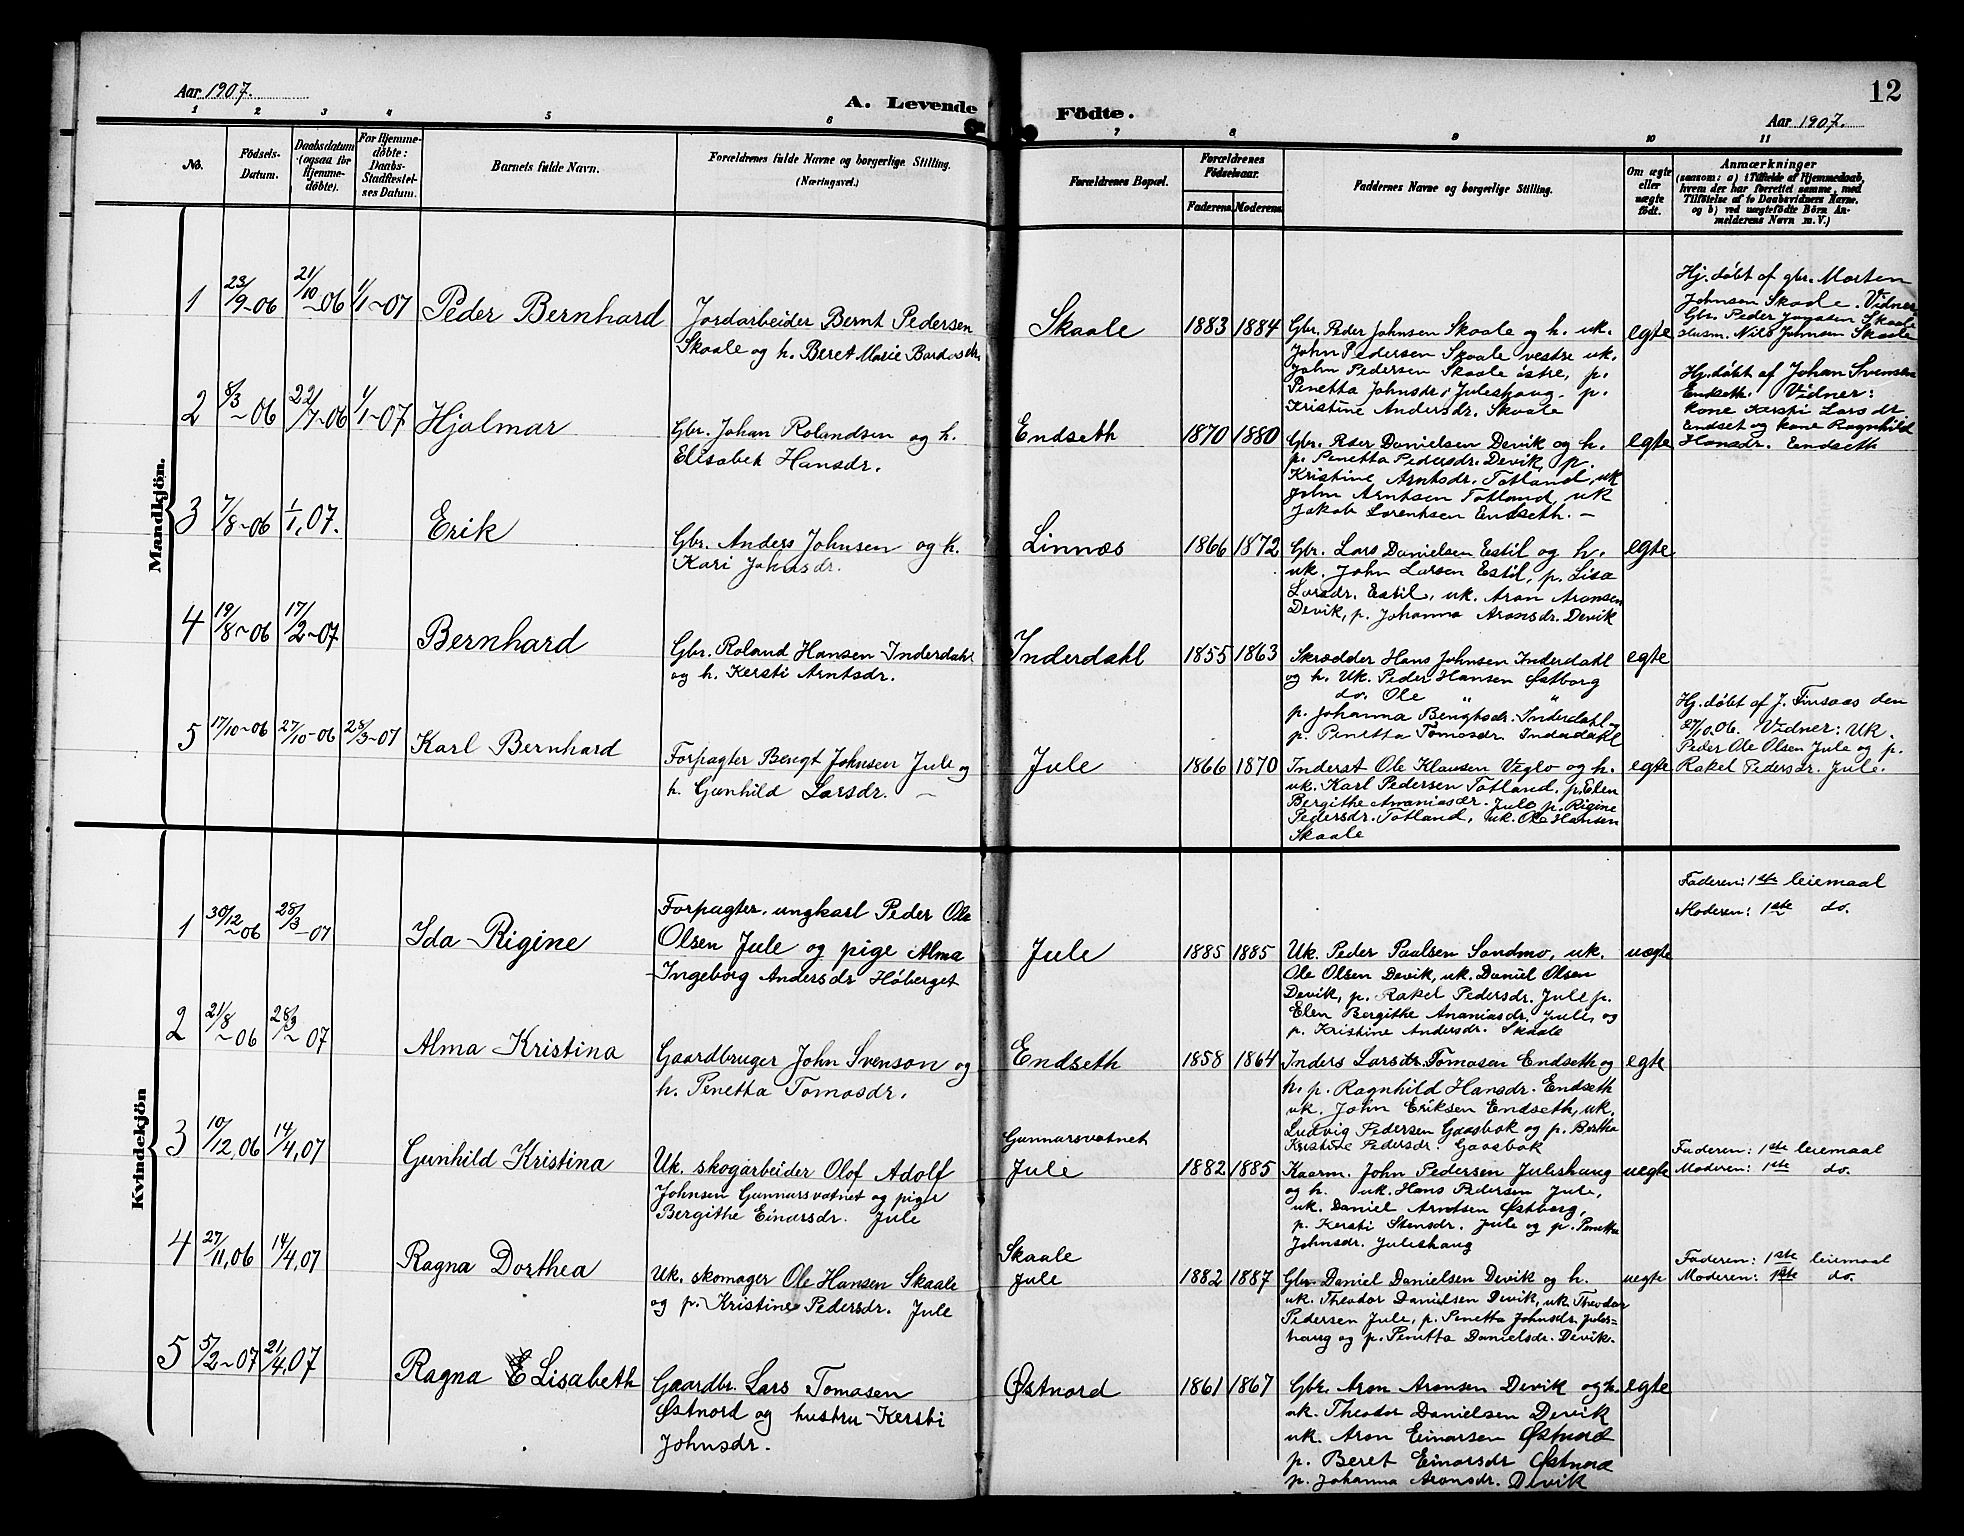 12
Aar 1907.
A. Levende Födte.
Aar 1907.
1 2 3 4 5 6 7 8 9 10 11
No.
Födsels-
Datum.
Daabsdatum
(ogsaa for
Hjemme-
døbte).
For Hjemme-
døbte:
Daabs-
Stadfæstel-
ses Datum.
Barnets fulde Navn.
Forældrenes fulde Navne og borgerlige Stilling.
(Næringsvei.)
Forældrenes Bopæl.
Forældrenes
Födselsaar.
Faderens Moderens
Faddernes Navne og borgerlige Stilling.
Om ægte
eller
uægte
födt.
Anmærkninger
(saasom: a) i Tilfælde af Hjemmedaab,
hvem der har forrettet samme, med
Tilföielse af to Daabsvidners Navne,
og b) ved uægtefödte Börn An-
melderens Navn m. V.)
Mandkjön.
1
23/9-06
21/10-06
1/1-07
Peder Bernhard
Jordarbeider Bernt Pedersen
Skaale og h. Beret Marie Bardosdtr.
Skaale
1883 1884
Gbr. Peder Johnsen Skaale og h. uk.
John Pedersen Skaale vestre uk.
John Pedersen Skaale østre, p.
Penetta Johnsdr. Juleshaug. p.
Kristine Andersdr. Skaale
egte
Hj. döbt af gbr. Morten
Johnsen Skaale. Vidner
Gbr. Peder Skaale
Husm. Nils Johnson Skaale
2
8/3-06
22/7-06
1/1-07
Hjalmar
Gbr. Johan Rolandsen og h.
Elisabet Hansdr.
Endseth
1870 1880
Gbr. Peder Danielsen Devik og h.
p. Penetta Pedersdr. Devik, p.
Kristine Arntsdr. Totland, uk
John Arntsen Totland, uk
Jakob Lorentsen Endseth. -
egte
Hj. döbt af Johan Svensen
Endseth. Vidner:
kone Kersti Larsdr.
Endset og kone Ragnhild
Hansdr. Endseth
3
7/8-06
1/1,07.
Erik
Gbr. Anders Johnsen og h.
Kari Johnsdr.
Linnæs
1866 1872
Gbr. Lars Danielsen Estil og h.
uk. John Larsen Estil, p. Lisa
Larsdr. Estil, uk. Aron Aronsen
Devik, p. Johanna Aronsdr. Devik
egte
4
19/8-06
17/2-07
Bernhard
Gbr. Roland Hansen Inderdahl
og h. Kersti Arntsdr.
Inderdahl
1855 1863
Skrædder Hans Johnsen Inderdahl
og h. Uk. Peder Hansen Østborg
do. Ole " "
p. Johanna Bengtsdr. Inderdahl og
p. Penetta Tomasdr. Inderdahl
egte
5
17/10-06
27/10-06
28/3-07
Karl Bernhard
Forpagter Bengt Johnsen Jule og
h. Gunhild Larsdr. -
Jule
1866 1870
Inderst Ole Klausen Veglo og h.
uk. Karl Pedersen Totland, p. Elen
Bergithe Ananiasdr. Jule p. Rigine
Pedersdr. Totland, uk. Ole Hansen
Skaale
egte
Hj. döbt af J. Finsaas den
27/10.06. Vidner: Uk.
Peder Ole Olsen Jule og p.
Rakel Pedersdr. Jule.
Kvindekjön
1
30/12-06
28/3-07
Ida Rigine
Forpagter. ungkarl Peder Ole
Olsen Jule og pige Alma
Ingeborg Andersdr Höberget
Jule
1885 1885
Uk. Peder Paulsen Sandmo, uk.
Ole Olsen Devik, uk. Daniel Olsen
Devik, p. Rakel Pedersdr. Jule p.
Elen Bergithe Ananiasdr. Jule, og
p. Kristine Andersdr. Skaale
uegte
Faderen: 1ste leiemaal
Moderen: 1ste do.
2
21/8-06
28/3-07
Alma Kristina
Gaardbruger John Svenson og
h. Penetta Tomasdr.
Endseth
1858 1864
Inders Larsdr. Tomasen Endseth og
h. p. Ragnhild Hansdr. Endseth
uk. John Eriksen Endseth, uk.
Ludvig Pedersen Gaasbak og p. Bertha
Kristine Pedersdr. Gaasbak
egte
3
10/12,06
14/4,07
Gunhild Kristina
Uk. skogarbeider Olof Adolf
Johnsen Gunnarsvatnet og pige
Bergithe Einarsdr. Jule
Gunnarsvatnet
Jule
1882 1885
Kaarm. John Pedersen Juleshaug
og h. uk. Hans Pedersen Jule,
uk. Daniel Arntsen Østborg,
p. Kersti Stensdr. Jule og p. Penetta
Johnsdr. Juleshaug
uegte
Faderen: 1ste leiemaal
Moderen: 1ste do.
4
27/11,06
14/4,07
Ragna Dorthea
Uk. skomager Ole Hansen Skaale
og p. Kristine Pedersdr. Jule
Skaale
Jule
1882 1887
Gbr. Daniel Danielsen Devik og h.
uk. Theodor Danielsen Devik, uk. Theodor
Pedersen Jule, p. Penetta Johnsdr. Jules-
haug og p. Penetta Danielsdr. Devik.
uegte
Faderen: 1ste leiemaal
Moderen: 1ste do.
5
5/2-07
21/4,07
Ragna Elisabeth
Gaardbr. Lars Tomasen
Østnord og hustru Kersti
Johnsdr.
Østnord
1861 1867
Gbr. Aron Aronsen Devik og h.
uk. Theodor Danielsen Devik
uk. Aron Einarsen Østnord
p. Beret Einarsdr Østnord
p. Johanna Aronsdr. Devik
egte